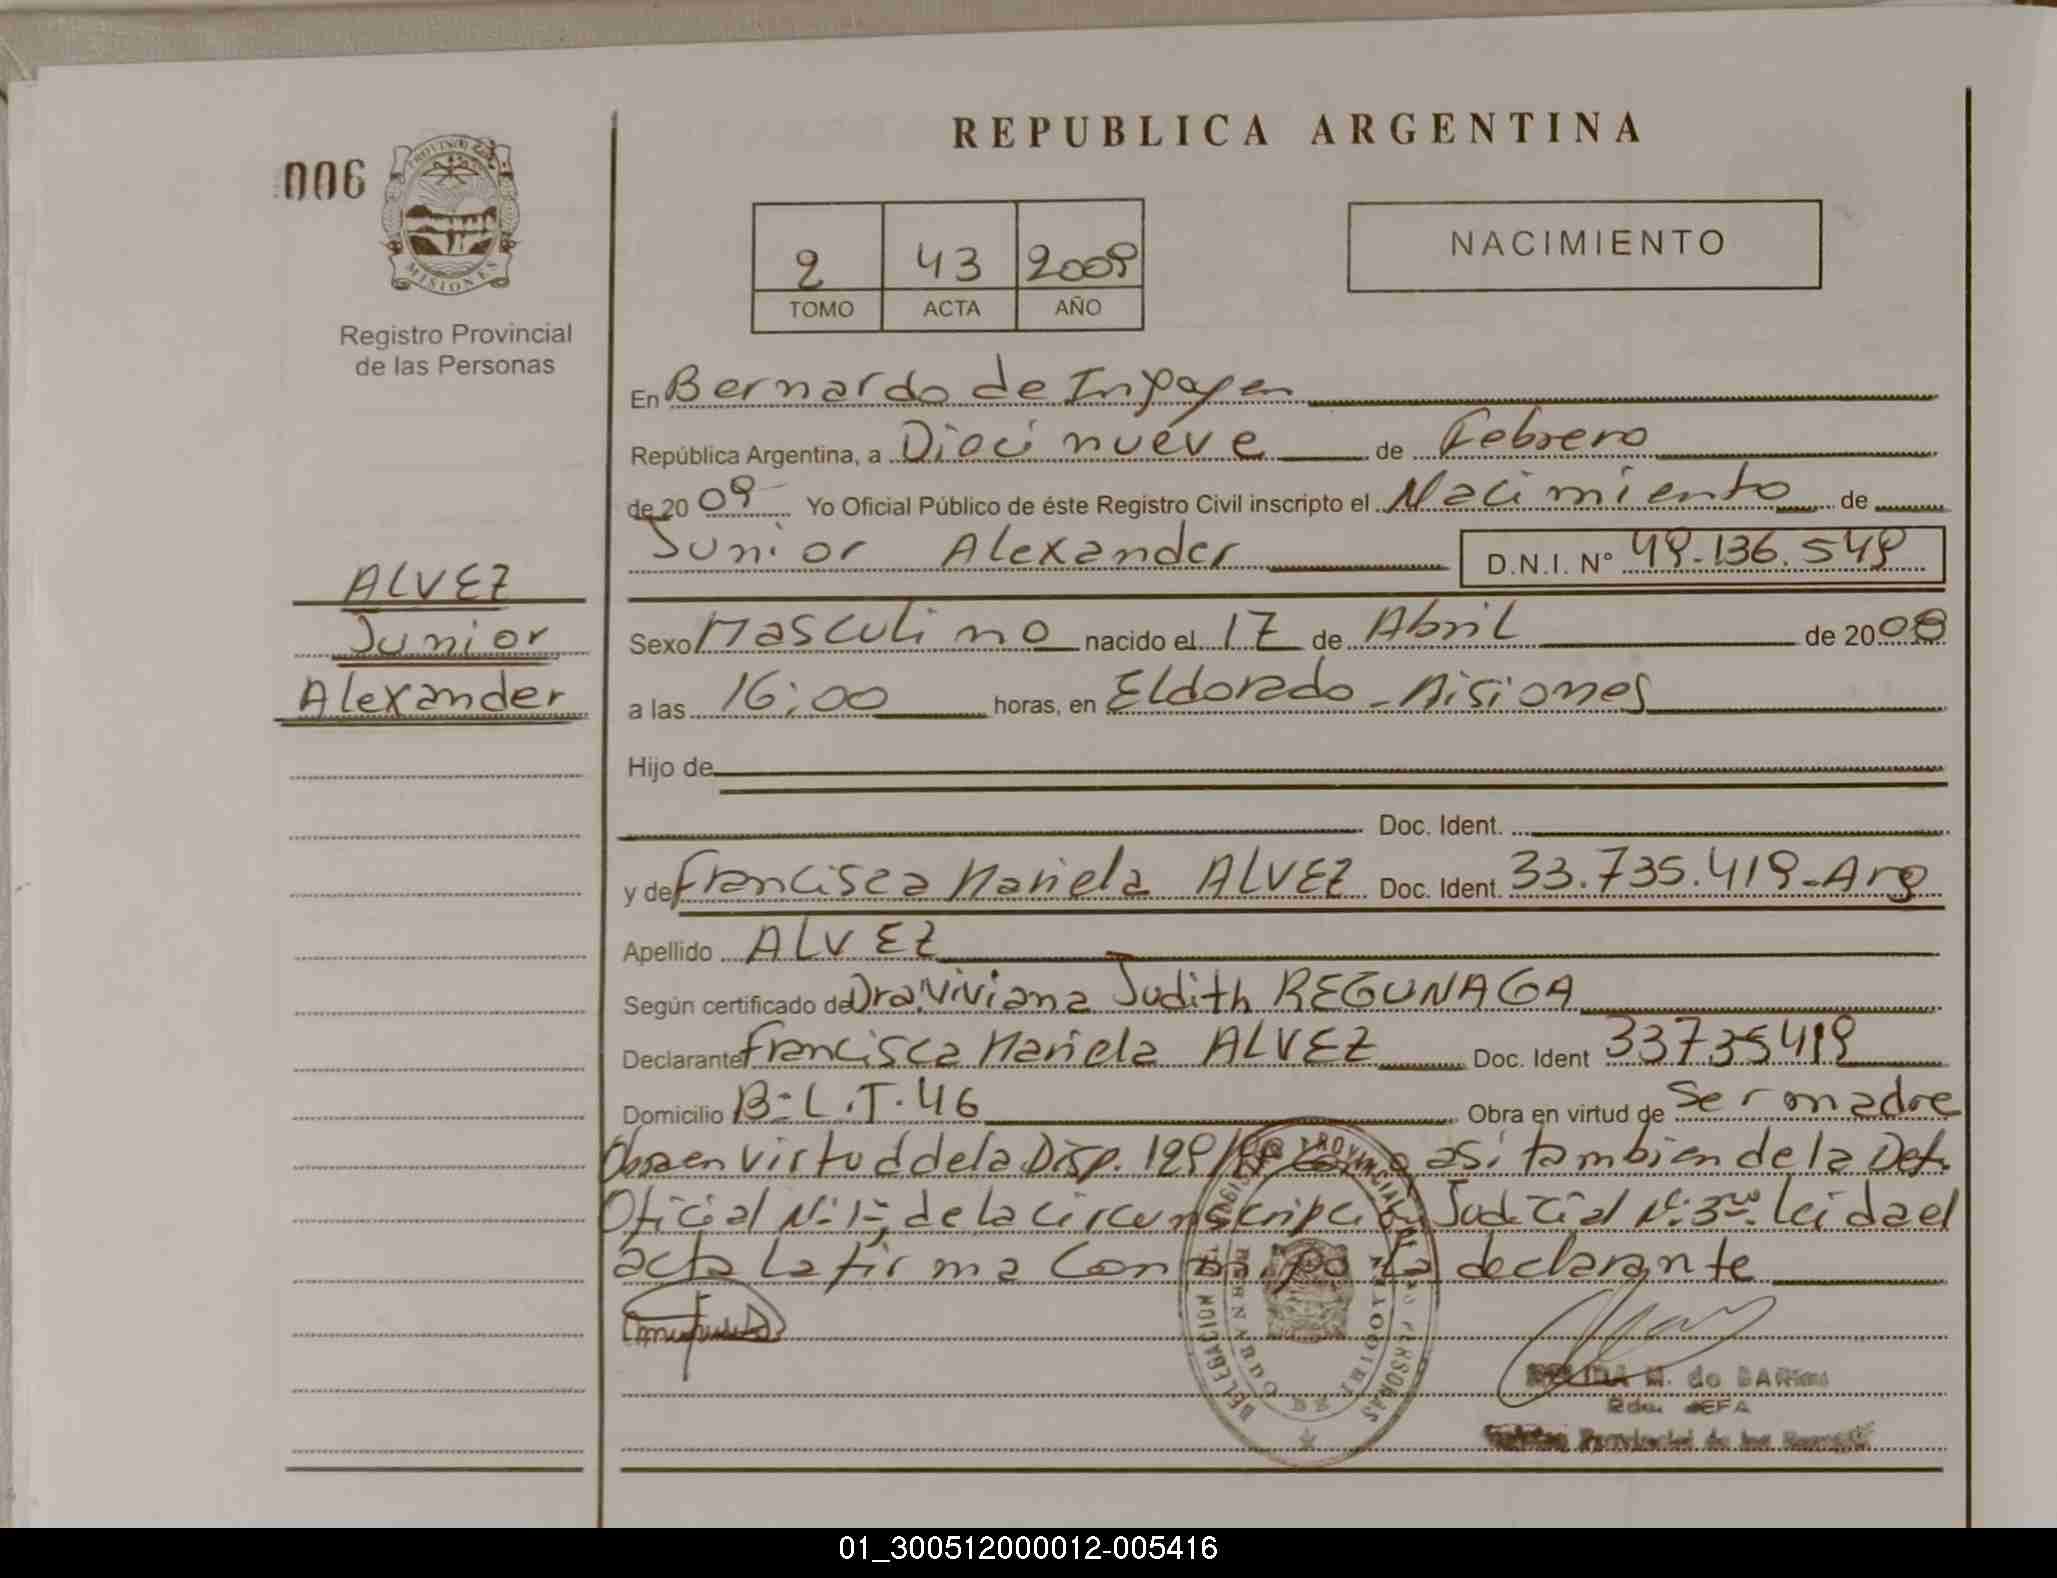 REPUBLICA ARGENTINA
006
PROVINCIA DE
MISIONES
Registro Provincial
de las Personas
2 43 2009
TOMO ACTA AÑO
NACIMIENTO
En Bernardo de Irigoyen
República Argentina, a Dieci nueve de Febrero
de 20 09 Yo Oficial Público de éste Registro Civil inscripto el Nacimiento de
Junior Alexander D.N.I. N° 49.136.549
ALVEZ
Junior
Alexander
Sexo Masculino nacido el 17 de Abril de 2008
a las 16:00 horas, en Eldorado - Misiones
Hijo de
Doc. Ident.
y de Francisca Mariela ALVEZ Doc. Ident. 33.735.419-Arg
Apellido ALVEZ
Según certificado de Dra. Viviana Judith REGUNAGA
Declarante Francisca Mariela ALVEZ Doc. Ident 33735419
Domicilio B-L.T.46 Obra en virtud de Ser madre
Obra en virtud de la Disp. 129/ asi tambien de la Def.
Oficial N° 1, de la circunscripción Judicial N° 3ra. Leida el
acta la firma conmigo la declarante
DELEGACION
M. de
JEFA
Provincial de las
01_300512000012-005416